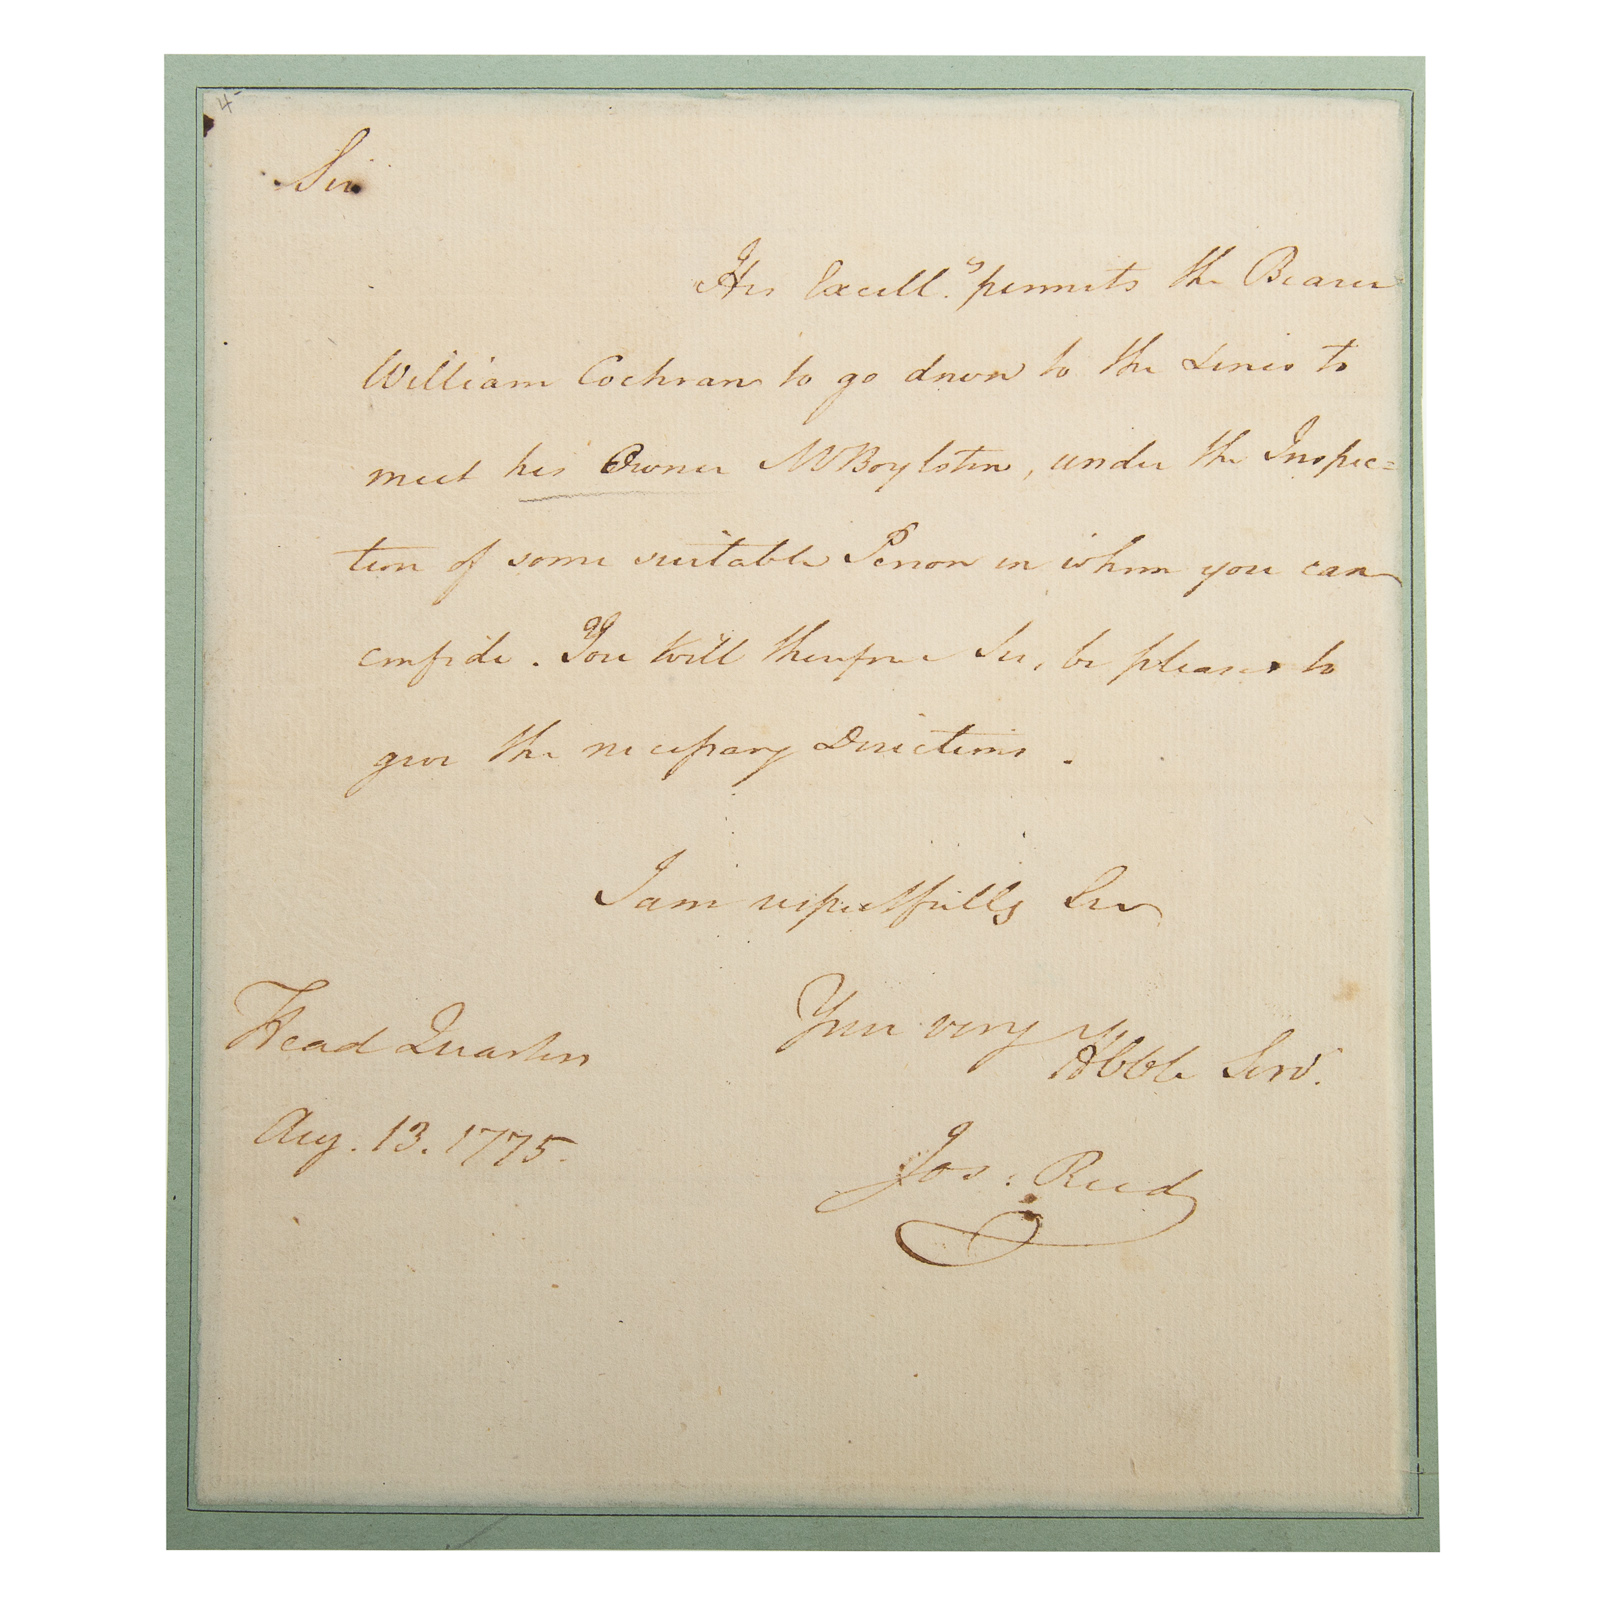 4-
Sir
His Excell.y permits the Bearer
William Cochran to go down to the Lines to
meet his Owner Mr Boylston, under the Inspec=
tion of some suitable Person in whom you can
confide. You will therefore Sir, be pleased to
give the necessary Directions.
I am respectfully Sir
Your very
Hbble Servt.
Head Quarters
Aug. 13. 1775.
Jos: Reed